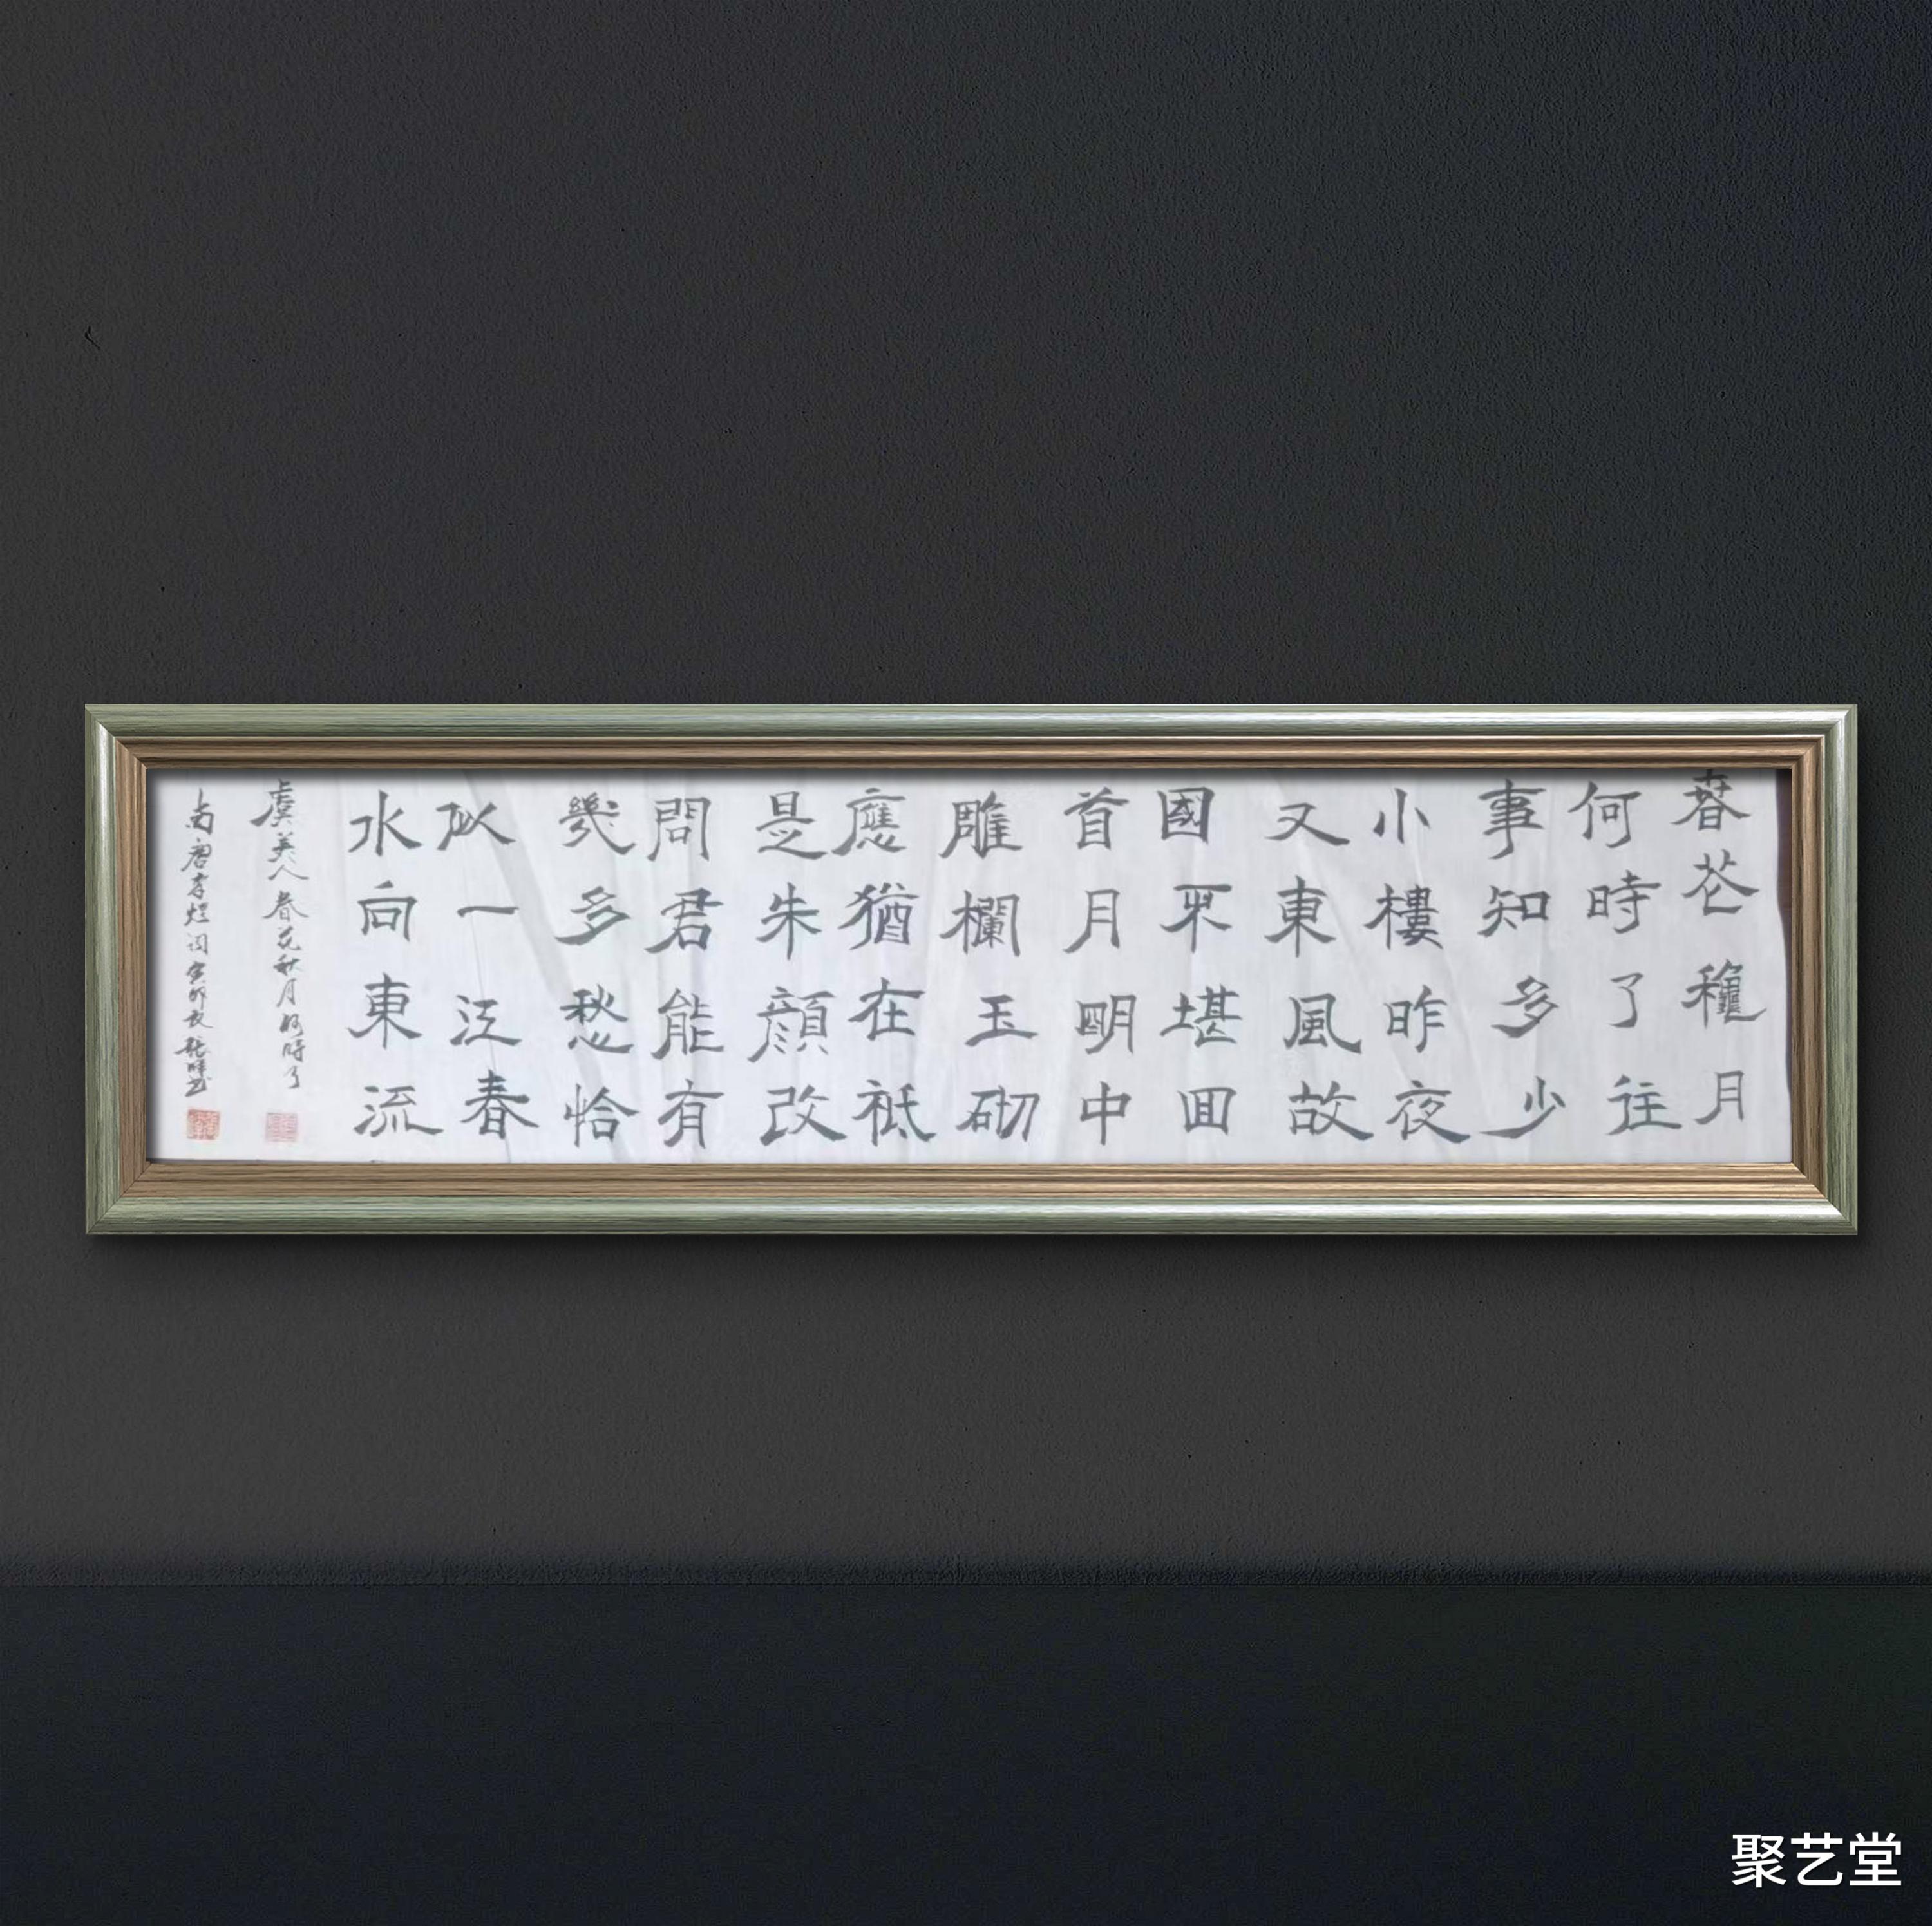 春花穐月
何時了往
事知多少
小樓昨夜
又東風故
國不堪囬
首月明中
雕欄玉砌
應猶在祗
是朱顔改
問君能有
幾多愁恰
似一江春
水向東流
虞美人春花秋月何時了
南唐李煜词
聚艺堂